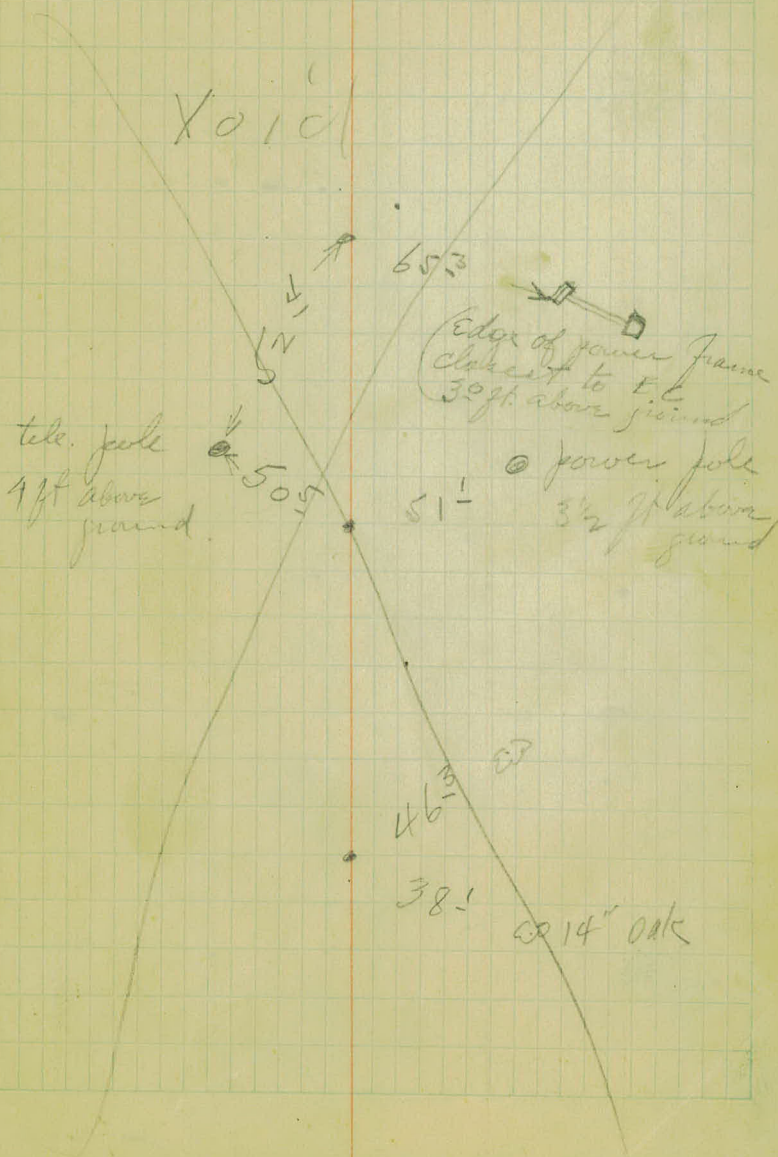 Void
65 3
52 1
(Edge of power frame
closest to
3.0 ft. above ground
tele. pole
4 ft above
ground.
50 5
51 1
power pole
3 1/2 ft above
ground
46 3
38 1
14" Oak